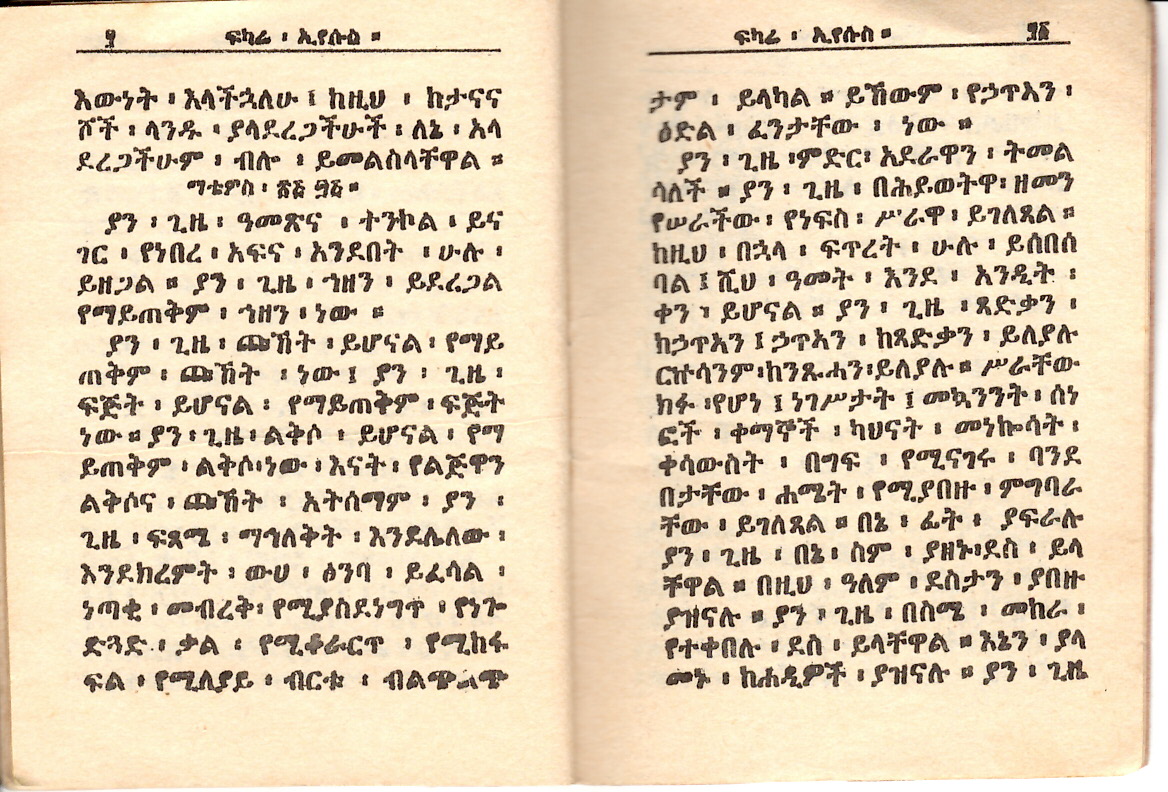 ፶ ፍካሬ ፡ ኢየሱስ ።
እውነት ፡ እላችኋለሁ ፤ ከዚህ ፡ ከታናና
ሾች ፡ ላንዱ ፡ ያላደረጋችሁች ፡ ለኔ ፡ አላ
ደረጋችሁም ፡ ብሎ ፡ ይመልስላቸዋል ።
ማቴዎስ ፡ ፳፭ ፵፭ ።
ያን ፡ ጊዜ ፡ ዓመጽና ፡ ተንኮል ፡ ይና
ገር ፡ የነበረ ፡ አፍና ፡ አንደበት ፡ ሁሉ ፡
ይዘጋል ። ያን ፡ ጊዜ ፡ ኀዘን ፡ ይደረጋል
የማይጠቅም ፡ ኀዘን ፡ ነው ።
ያን ፡ ጊዜ ፡ ጩኸት ፡ ይሆናል ፡ የማይ
ጠቅም ፡ ጩኸት ፡ ነው ፤ ያን ፡ ጊዜ ፡
ፍጅት ፡ ይሆናል ፡ የማይጠቅም ፡ ፍጅት
ነው ። ያን ፡ ጊዜ ፡ ልቅሶ ፡ ይሆናል ፡ የማ
ይጠቅም ፡ ልቅሶ ፡ ነው ፡ እናት ፡ የልጅዋን
ልቅሶና ፡ ጩኸት ፡ አትሰማም ፡ ያን ፡
ጊዜ ፡ ፍጻሜ ፡ ማኅለቅት ፡ እንደሌለው ፡
እንደክረምት ፡ ውሀ ፡ ዕንባ ፡ ይፈሳል ፡
ነጣቂ ፡ መብረቅ ፡ የሚያስደነግጥ ፡ የነጐ
ድጓድ ፡ ቃል ፡ የሚቆራርጥ ፡ የሚከፋ
ፍል ፡ የሚለያይ ፡ ብርቱ ፡ ብልጭልጭ
ፍካሬ ፡ ኢየሱስ ። ፶፩
ታም ፡ ይላካል ። ይኸውም ፡ የኃጥአን ፡
ዕድል ፡ ፈንታቸው ፡ ነው ።
ያን ፡ ጊዜ ፡ ምድር ፡ አደራዋን ፡ ትመል
ሳለች ። ያን ፡ ጊዜ ፡ በሕይወትዋ ፡ ዘመን
የሠራችው ፡ የነፍስ ፡ ሥራዋ ፡ ይገለጻል ።
ከዚህ ፡ በኋላ ፡ ፍጥረት ፡ ሁሉ ፡ ይሰበሰ
ባል ፤ ሺህ ፡ ዓመት ፡ እንደ ፡ አንዲት ፡
ቀን ፡ ይሆናል ። ያን ፡ ጊዜ ፡ ጻድቃን ፡
ከኃጥአን ፤ ኃጥአን ፡ ከጻድቃን ፡ ይለያሉ
ርኩሳንም ፡ ከንጹሓን ፡ ይለያሉ ። ሥራቸው
ክፉ ፡ የሆነ ፤ ነገሥታት ፤ መኳንንት ፡ ሰነ
ፎች ፡ ቀማኞች ፡ ካህናት ፡ መነኰሳት ፡
ቀሳውስት ፡ በግፍ ፡ የሚናገሩ ፡ ባንደ
በታቸው ፡ ሐሜት ፡ የሚያበዙ ፡ ምግባራ
ቸው ፡ ይገለጻል ። በኔ ፡ ፊት ፡ ያፍራሉ
ያን ፡ ጊዜ ፡ በኔ ፡ ስም ፡ ያዘኑ ፡ ደስ ፡ ይላ
ቸዋል ። በዚህ ፡ ዓለም ፡ ደስታን ፡ ያበዙ
ያዝናሉ ። ያን ፡ ጊዜ ፡ በስሜ ፡ መከራ ፡
የተቀበሉ ፡ ደስ ፡ ይላቸዋል ። እኔን ፡ ያላ
መኑ ፡ ከሐዲዎች ፡ ያዝናሉ ። ያን ፡ ጊዜ